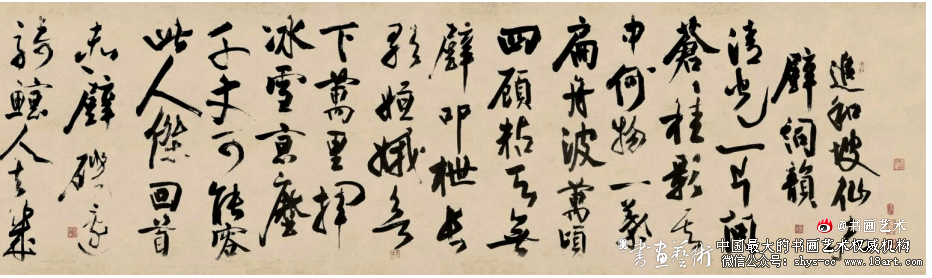 追和坡仙
壁詞韻
清光一片問
蒼〻桂影其
中何物一葉
扁舟波萬頃
四顧粘天無
壁叩枻長
歌姮娥欲
下萬里揮
冰雪京塵
千丈可能容
此人傑回首
赤壁磯邊
騎鯨人去幾
書畫藝術
@书画艺术
中国最大的书画艺术权威机构
微信公众号:shys-cc www.18art.com